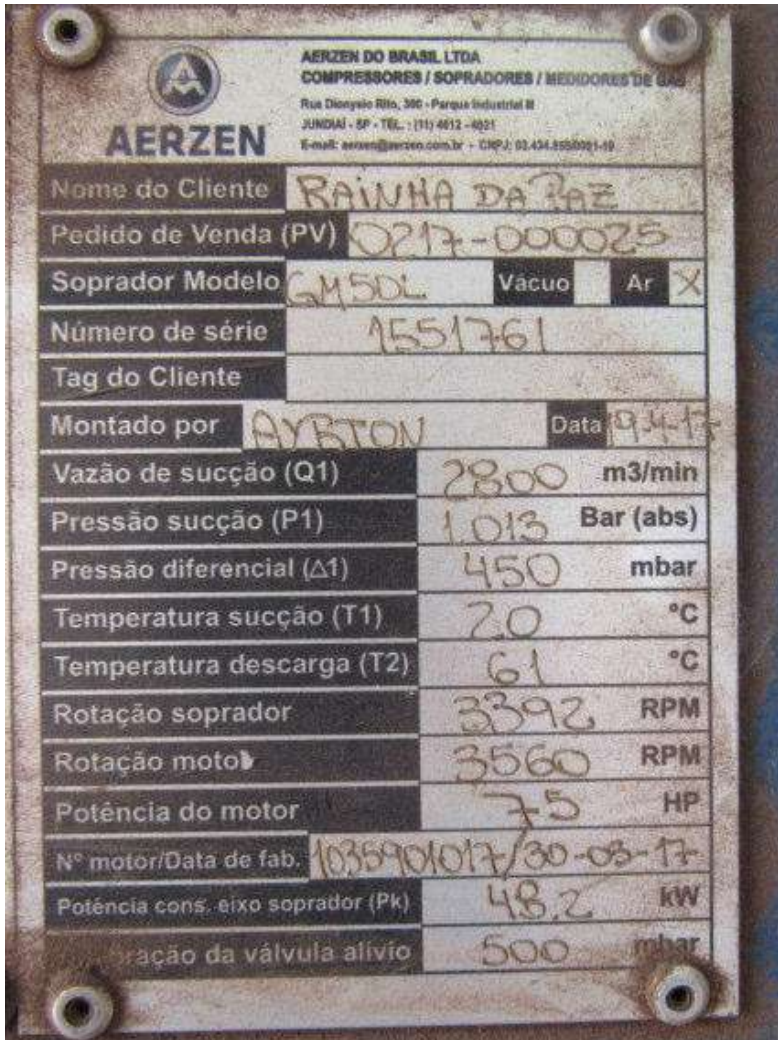 AERZEN DO BRASIL LTDA
COMPRESSORES / SOPRADORES / MEDIDORES DE GÁS
Rua Dionysio Rito, 300 - Parque Industrial III
JUNDIAÍ - SP - TEL. : (11) 4612 - 4021
E-mail: aerzen@aerzen.com.br - CNPJ:
AERZEN
Nome do Cliente RAINHA DA PAZ
Pedido de Venda (PV) 0217-000025
Soprador Modelo GM50L Vácuo Ar X
Número de série 1551761
Tag do Cliente
Montado por AYRTON Data 19.4.17
Vazão de sucção (Q1) 2800 m3/min
Pressão sucção (P1) 1.013 Bar (abs)
Pressão diferencial (Δ1) 450 mbar
Temperatura sucção (T1) 20 °C
Temperatura descarga (T2) 61 °C
Rotação soprador 3392 RPM
Rotação motor 3560 RPM
Potência do motor 75 HP
Nº motor/Data de fab. 1035901017/30-03-17
Potência cons. eixo soprador (Pk) 48.2 kW
ração da válvula alívio 500 mbar